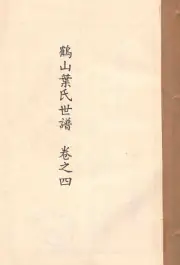 鶴山葉氏世譜 卷之四